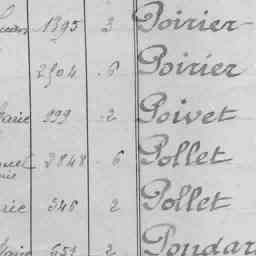 1395 3 Poirier
2504 6 Poirier
999 2 Poivet
3848 6 Pollet
346 2 Pollet
651 2 Pondar